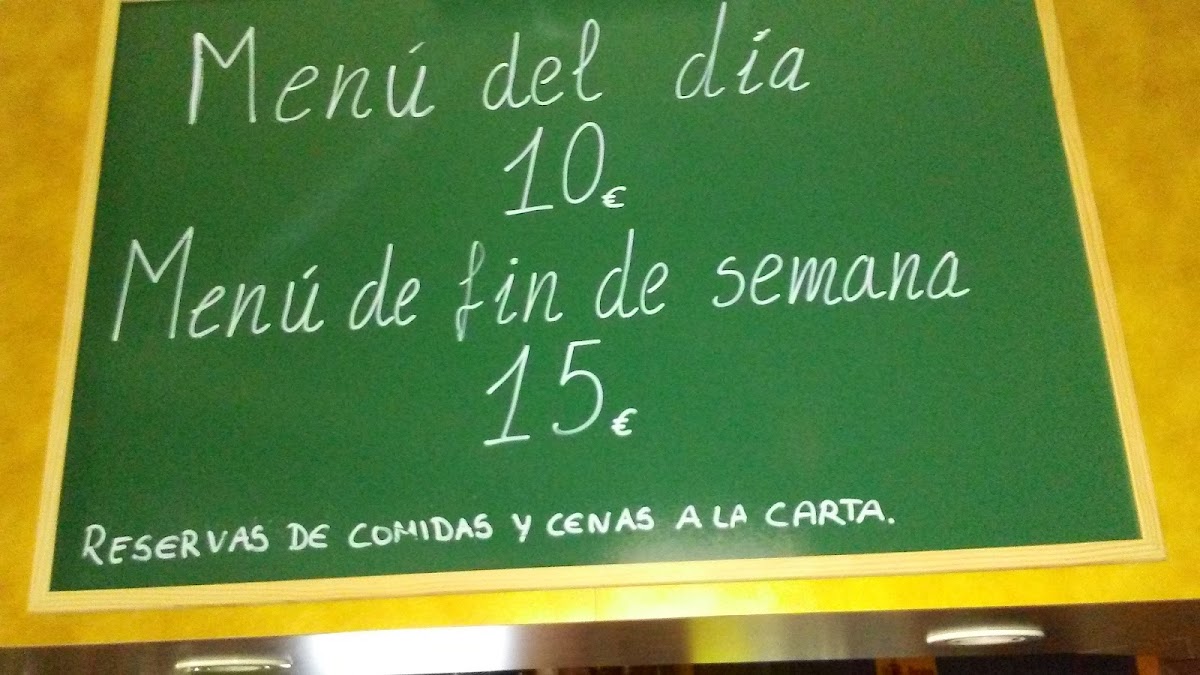 Menú del día
10€
Menú de fin de semana
15€
RESERVAS DE COMIDAS Y CENAS A LA CARTA.